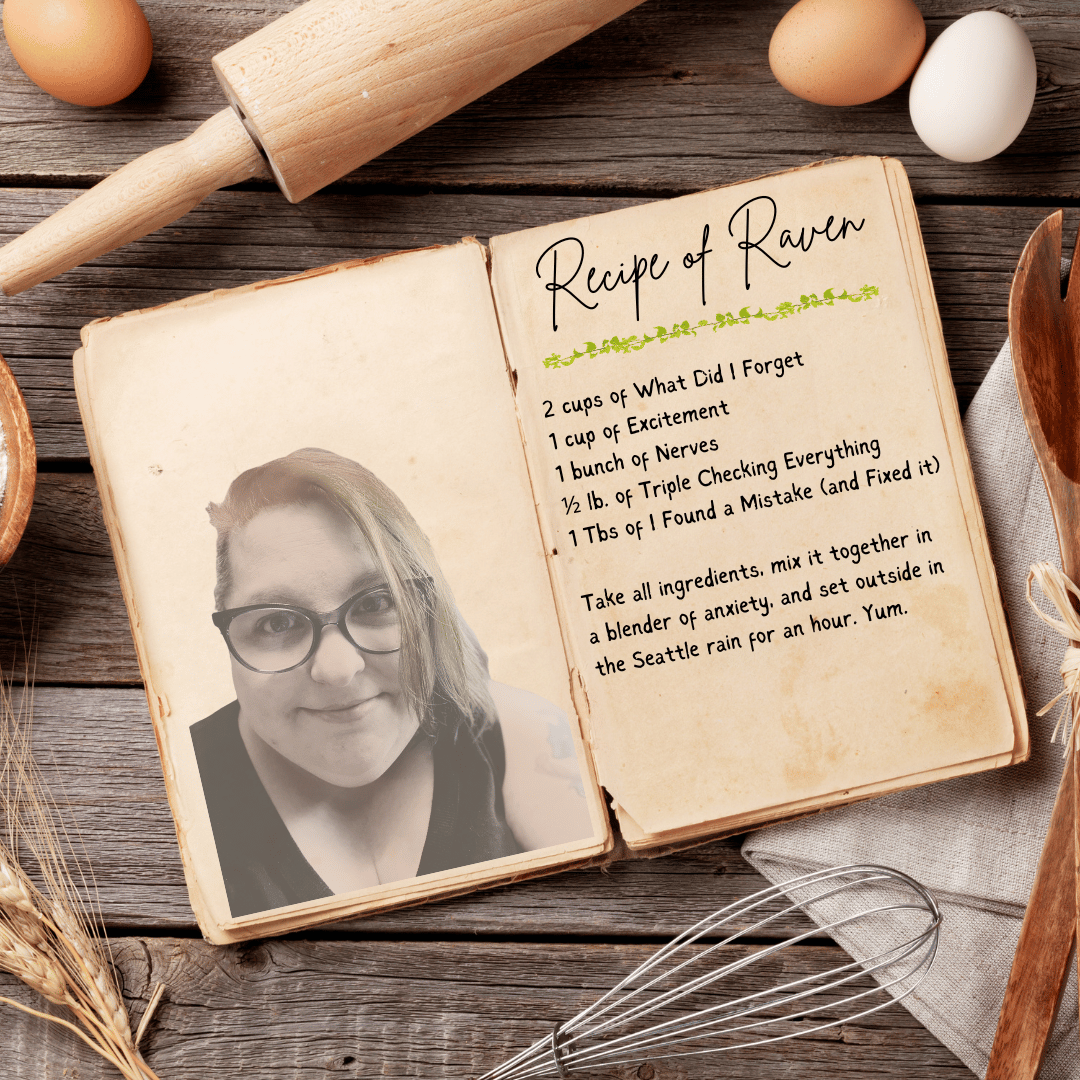 Recipe of Raven
2 cups of What Did I Forget
1 cup of Excitement
1 bunch of Nerves
½ lb. of Triple Checking Everything
1 Tbs of I Found a Mistake (and Fixed it)
Take all ingredients, mix it together in
a blender of anxiety, and set outside in
the Seattle rain for an hour. Yum.